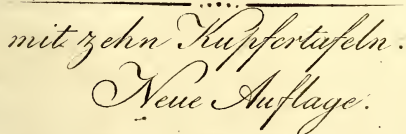 mit zehn Kupfertafeln.
Neue Auflage.